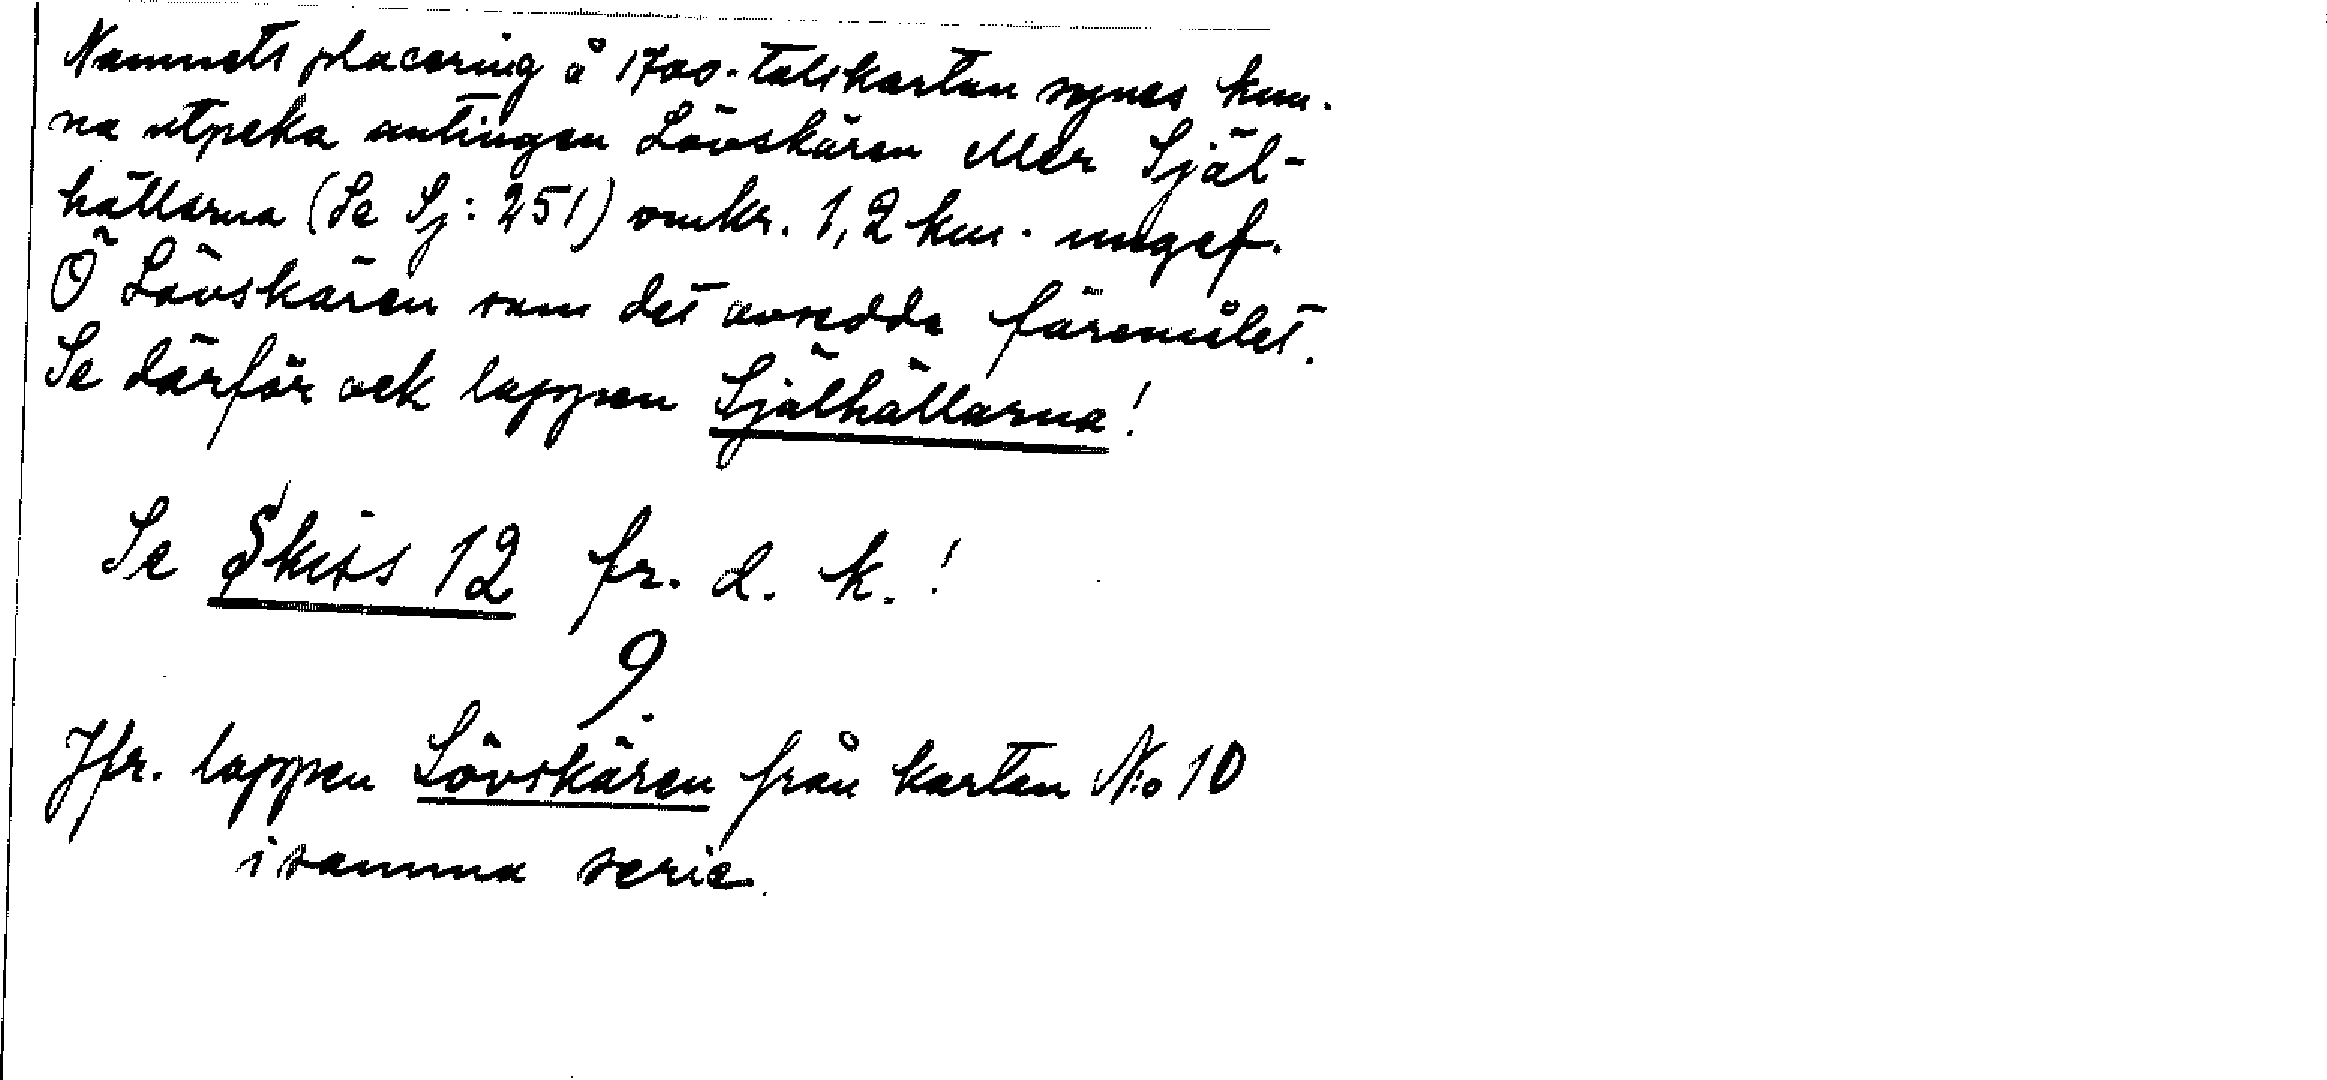 Namnets placering å 1700-talskartan synes kun-
na utpeka antingen Lövskären eller Själ-
hällarna (Se Sj: 251) omkr. 1,2 km. ungef.
Ö Lövskären som det avsedda föremålet.
Se därför ock lappen Själhällarna!
Se Skiss 12 fr. d. k.!
9.
Jfr. lappen Lövskären från kartan No 10
i samma serie.